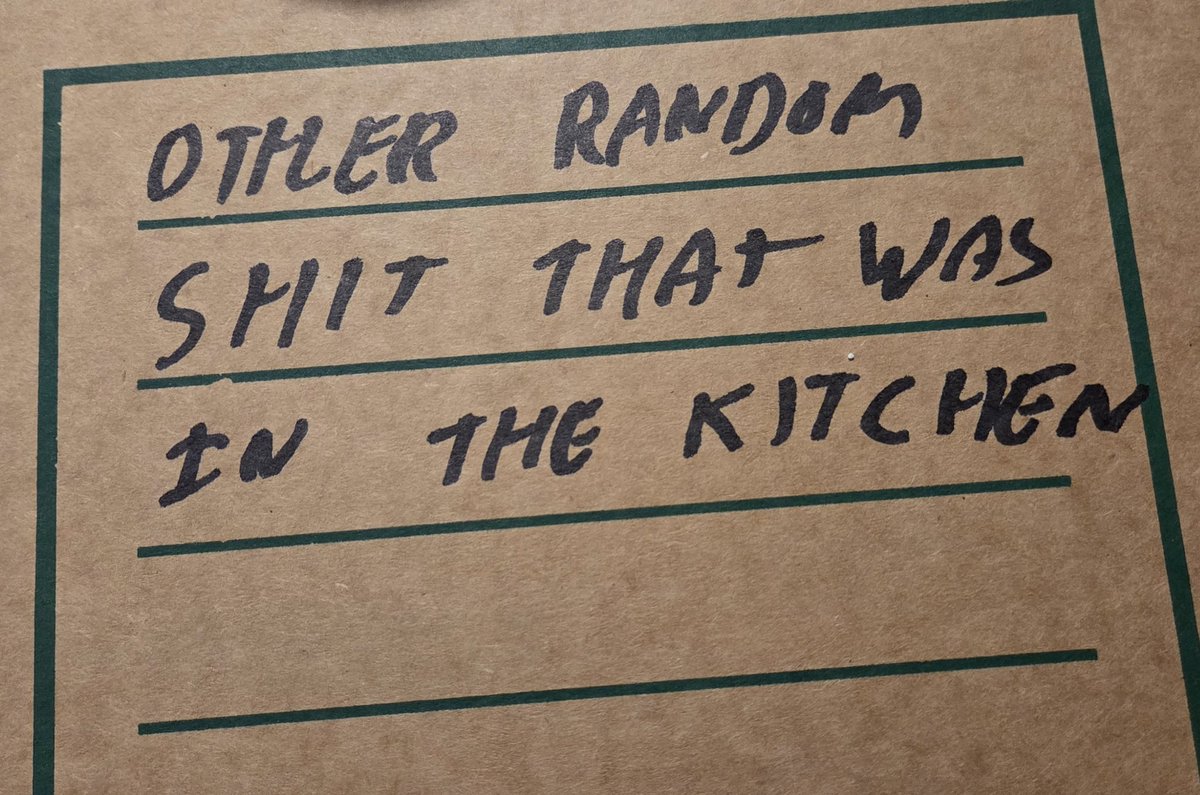 OTHER RANDOM
SHIT THAT WAS
IN THE KITCHEN